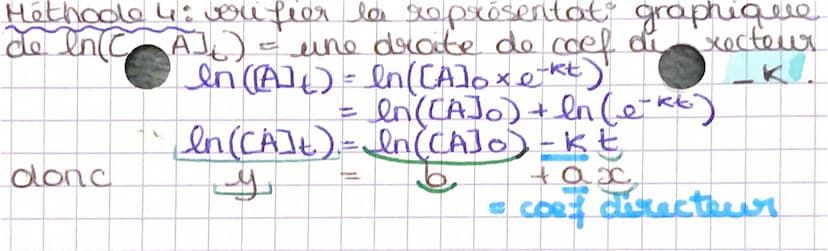 Méthode 4: vérifier la représentat° graphique
de ln([A]t) = une droite de coef directeur
ln([A]t) = ln([A]0 × e^-kt) -K.
= ln([A]0) + ln(e^-kt)
ln([A]t) = ln([A]0) - k t
donc y = b + a x
= coef directeur